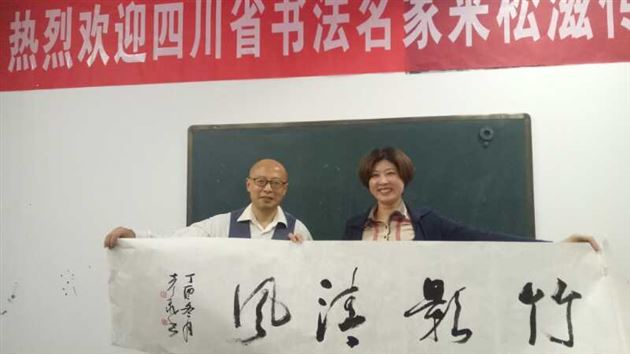 热烈欢迎四川省书法名家来松滋传
竹影清风
丁酉冬月